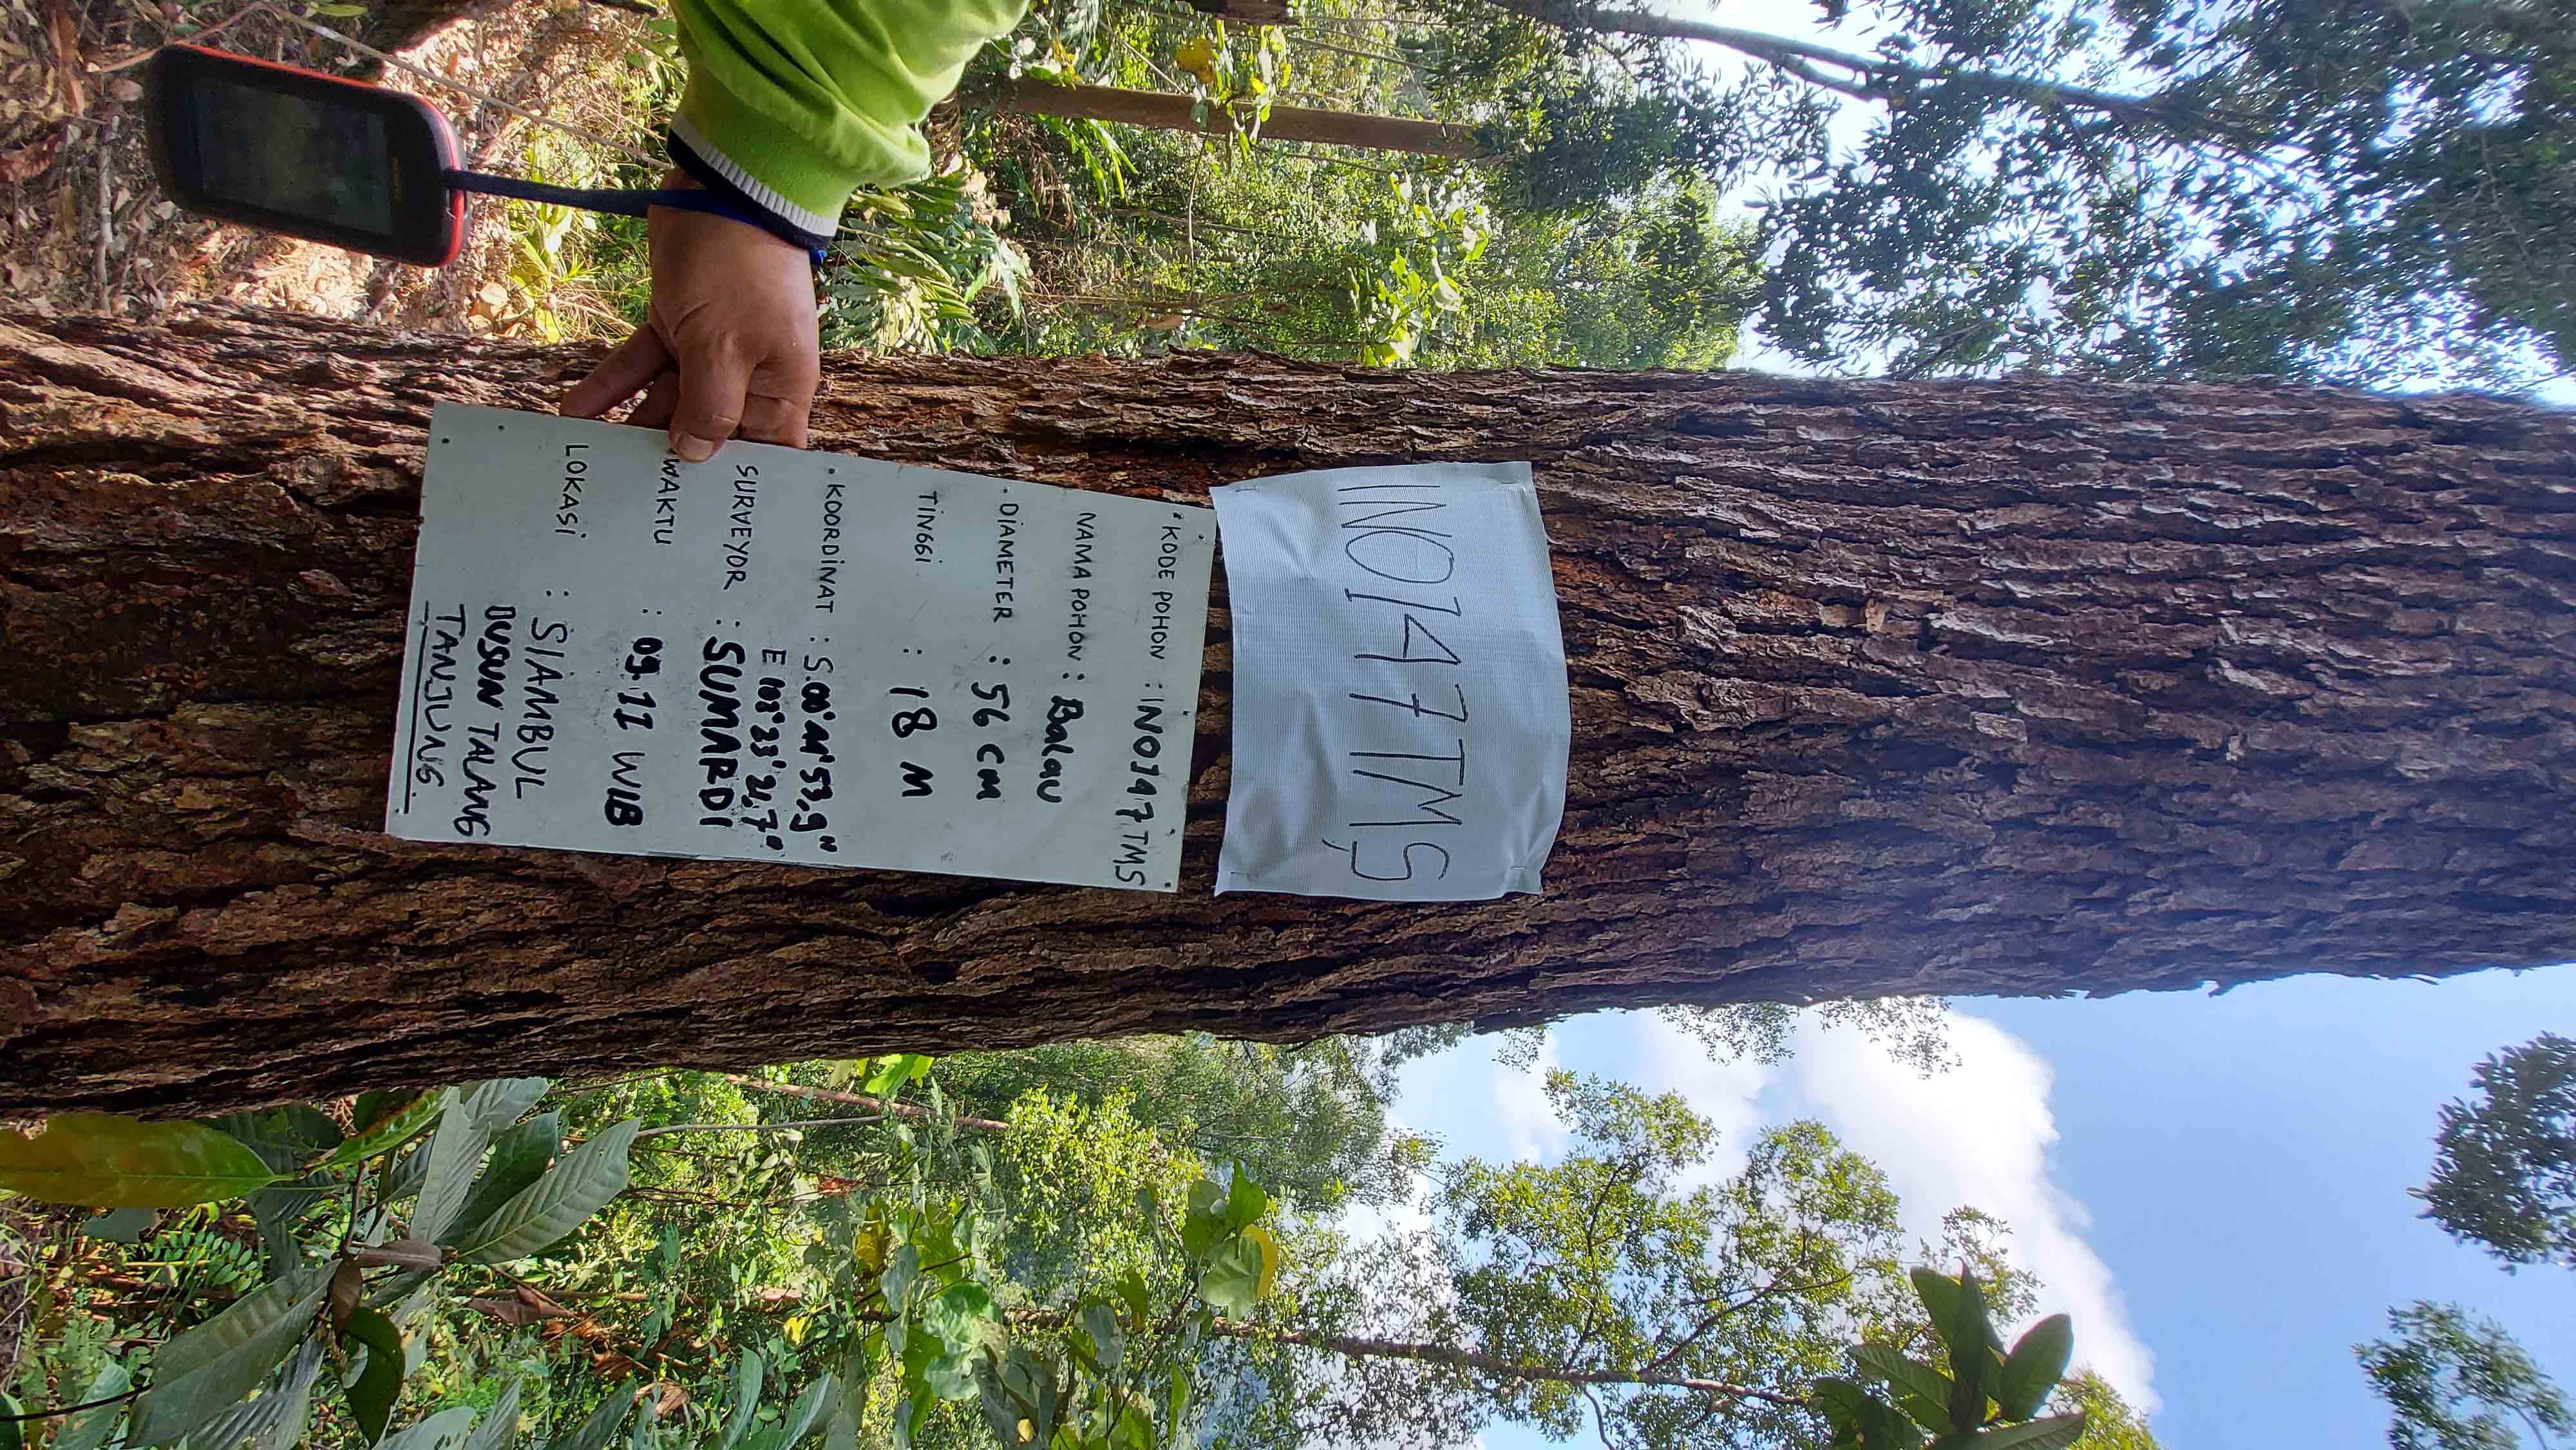 INO147TMS
KODE POHON : INO147 TMS
NAMA POHON : Balau
DIAMETER : 56 CM
TINGGI : 18 M
KOORDINAT : S.00°44'53,9"
E 102°23'21,7"
SURVEYOR : SUMARDI
WAKTU : 09.11 WIB
LOKASI : SIAMBUL
DUSUN TALANG
TANJUNG.